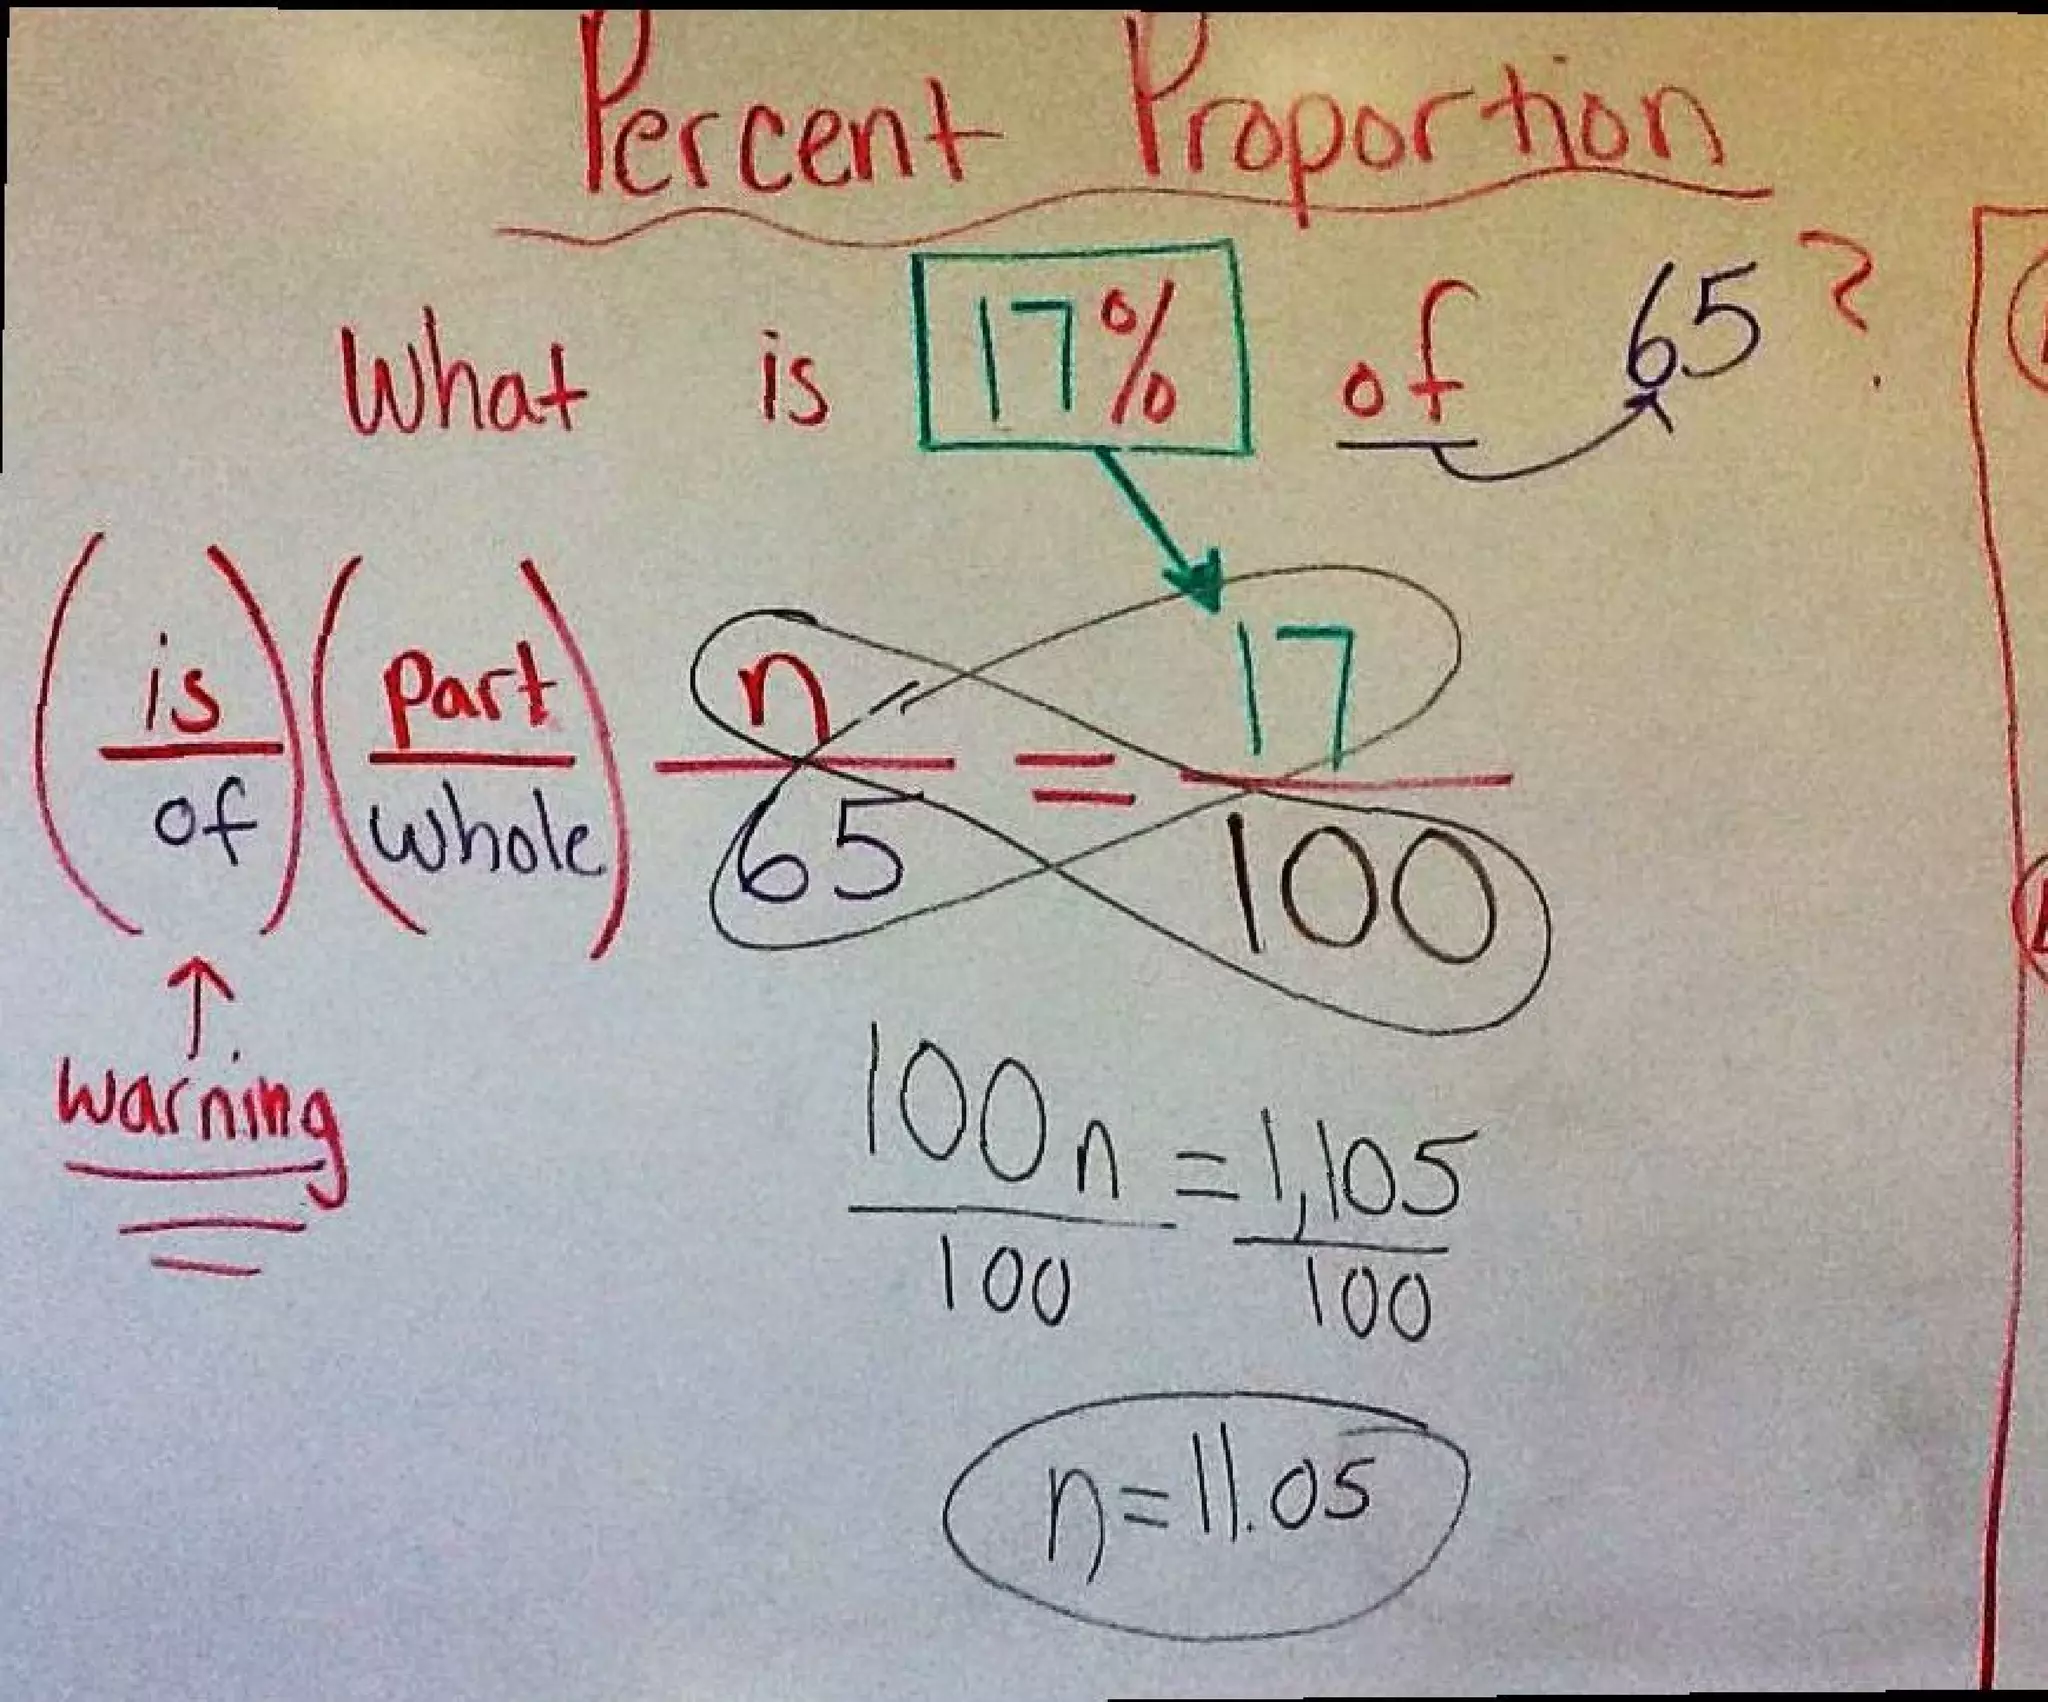 Percent Proportion
What is 17% of 65?
(is/of) (part/whole) n/65 = 17/100
warning
100n/100 = 1,105/100
n=11.05